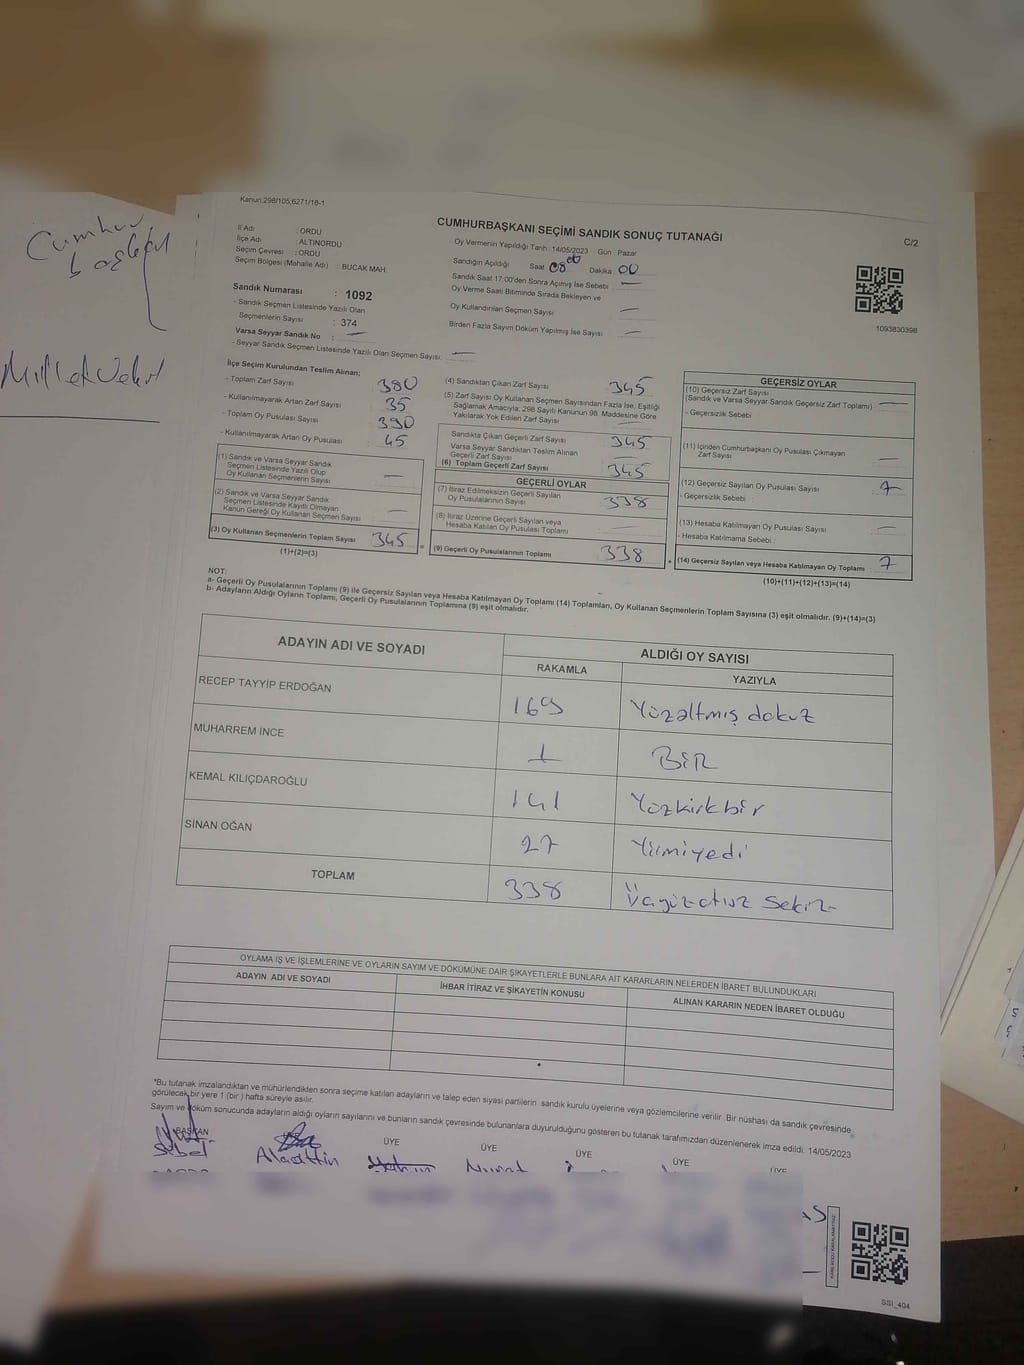 Cumhur
başkan
Milletvekil
Kanun:298/105;6271/18-1
CUMHURBAŞKANI SEÇİMİ SANDIK SONUÇ TUTANAĞI
C/2
İl Adı : ORDU
İlçe Adı : ALTINORDU
Seçim Çevresi : ORDU
Seçim Bölgesi (Mahalle Adı) : BUCAK MAH.
Sandık Numarası : 1092
- Sandık Seçmen Listesinde Yazılı Olan
Seçmenlerin Sayısı : 374
Varsa Seyyar Sandık No : —
- Seyyar Sandık Seçmen Listesinde Yazılı Olan Seçmen Sayısı: —
Oy Vermenin Yapıldığı Tarih :14/05/2023 Gün : Pazar
Sandığın Açıldığı Saat 08 00 Dakika 00
Sandık Saat 17:00'den Sonra Açımış İse Sebebi : —
Oy Verme Saati Bitiminde Sırada Bekleyen ve
Oy Kullandırılan Seçmen Sayısı —
Birden Fazla Sayım Döküm Yapılmış İse Sayısı —
1093830398
İlçe Seçim Kurulundan Teslim Alınan;
- Toplam Zarf Sayısı 380
- Kullanılmayarak Artan Zarf Sayısı 35
- Toplam Oy Pusulası Sayısı 390
- Kullanılmayarak Artan Oy Pusulası 45
(1) Sandık ve Varsa Seyyar Sandık
Seçmen Listesinde Yazılı Olup
Oy Kullanan Seçmenlerin Sayısı —
(2) Sandık ve Varsa Seyyar Sandık
Seçmen Listesinde Kayıtlı Olmayan
Kanun Gereği Oy Kullanan Seçmen Sayısı —
(3) Oy Kullanan Seçmenlerin Toplam Sayısı 345
(1)+(2)=(3)
(4) Sandıktan Çıkan Zarf Sayısı 345
(5) Zarf Sayısı Oy Kullanan Seçmen Sayısından Fazla İse, Eşitliği
Sağlamak Amacıyla; 298 Sayılı Kanunun 98. Maddesine Göre
Yakılarak Yok Edilen Zarf Sayısı —
Sandıkta Çıkan Geçerli Zarf Sayısı 345
Varsa Seyyar Sandıktan Teslim Alınan
Geçerli Zarf Sayısı —
(6) Toplam Geçerli Zarf Sayısı 345
GEÇERLİ OYLAR
(7) İtiraz Edilmeksizin Geçerli Sayılan
Oy Pusulalarının Sayısı 338
(8) İtiraz Üzerine Geçerli Sayılan veya
Hesaba Katılan Oy Pusulası Toplamı —
(9) Geçerli Oy Pusulalarının Toplamı 338
GEÇERSİZ OYLAR
(10) Geçersiz Zarf Sayısı
(Sandık ve Varsa Seyyar Sandık Geçersiz Zarf Toplamı) —
- Geçersizlik Sebebi
(11) İçinden Cumhurbaşkanı Oy Pusulası Çıkmayan
Zarf Sayısı —
(12) Geçersiz Sayılan Oy Pusulası Sayısı 7
- Geçersizlik Sebebi :
(13) Hesaba Katılmayan Oy Pusulası Sayısı —
- Hesaba Katılmama Sebebi :
(14) Geçersiz Sayılan veya Hesaba Katılmayan Oy Toplamı 7
(10)+(11)+(12)+(13)=(14)
NOT:
a- Geçerli Oy Pusulalarının Toplamı (9) ile Geçersiz Sayılan veya Hesaba Katılmayan Oy Toplamı (14) Toplamları, Oy Kullanan Seçmenlerin Toplam Sayısına (3) eşit olmalıdır. (9)+(14)=(3)
b- Adayların Aldığı Oyların Toplamı, Geçerli Oy Pusulalarının Toplamına (9) eşit olmalıdır.
ADAYIN ADI VE SOYADI ALDIĞI OY SAYISI
RAKAMLA YAZIYLA
RECEP TAYYİP ERDOĞAN 169 Yüzaltmış dokuz
MUHARREM İNCE 1 BİR
KEMAL KILIÇDAROĞLU 141 Yüzkırkbir
SİNAN OĞAN 27 Yirmiyedi
TOPLAM 338 Üçyüzotuz Sekiz
OYLAMA İŞ VE İŞLEMLERİNE VE OYLARIN SAYIM VE DÖKÜMÜNE DAİR ŞİKAYETLERLE BUNLARA AİT KARARLARIN NELERDEN İBARET BULUNDUKLARI
ADAYIN ADI VE SOYADI İHBAR İTİRAZ VE ŞİKAYETİN KONUSU ALINAN KARARIN NEDEN İBARET OLDUĞU
*Bu tutanak imzalandıktan ve mühürlendikten sonra seçime katılan adayların ve talep eden siyasi partilerin sandık kurulu üyelerine veya gözlemcilerine verilir. Bir nüshası da sandık çevresinde
görülecek bir yere 1 (bir ) hafta süreyle asılır.
Sayım ve döküm sonucunda adayların aldığı oyların sayılarını ve bunların sandık çevresinde bulunanlara duyurulduğunu gösteren bu tutanak tarafımızdan düzenlenerek imza edildi. 14/05/2023
BAŞKAN ÜYE ÜYE ÜYE ÜYE ÜYE
Sebel Alaattin
SSİ_404